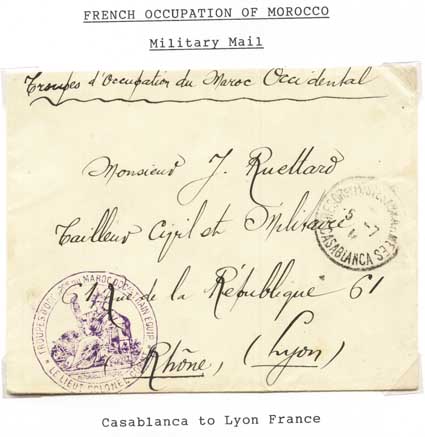 FRENCH OCCUPATION OF MOROCCO
Military Mail
Troupes d'Occupation du Maroc Occidental
Monsieur J. Ruellard
Tailleur Civil et Militaire
61 Rue de la République 61
(Rhône) (Lyon)
CASABLANCA
TROUPES D'OCC MAROC
LE LIEUT COLONEL
Casablanca to Lyon France